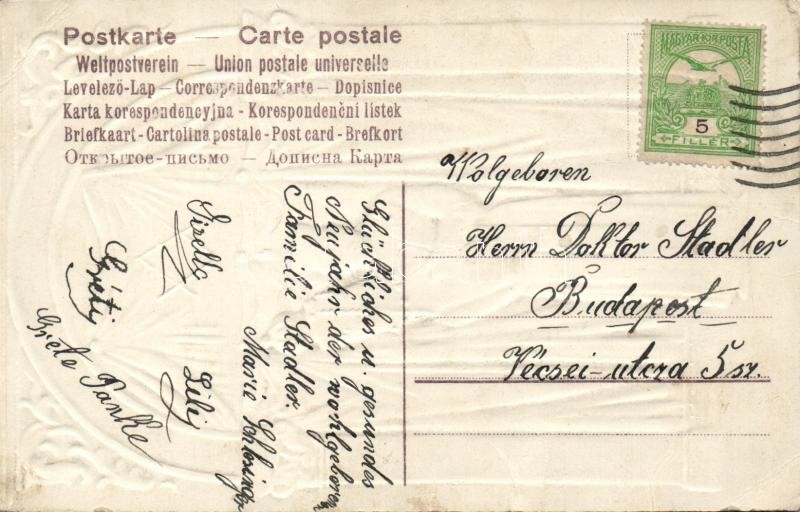 Postkarte — Carte postale
Weltpostverein — Union postale universelle
Levelező-Lap — Correspondenzkarte — Dopisnice
Karta korespondencyjna - Korespondenční lístek
Briefkaart - Cartolina postale - Post card - Brefkort
Открытое-письмо — Дописна Карта
MAGYAR KIR. POSTA
5
FILLÉR
Wolgeboren
Herrn Doktor Stadler
Budapest
Vécsei-utcza 5 sz.
Glückliches u. gesundes
Neujahr der wohlgeboren
Familie Stadler.
Marie Schlesinger
Gizella
Lili
Gréti
Grete Panke